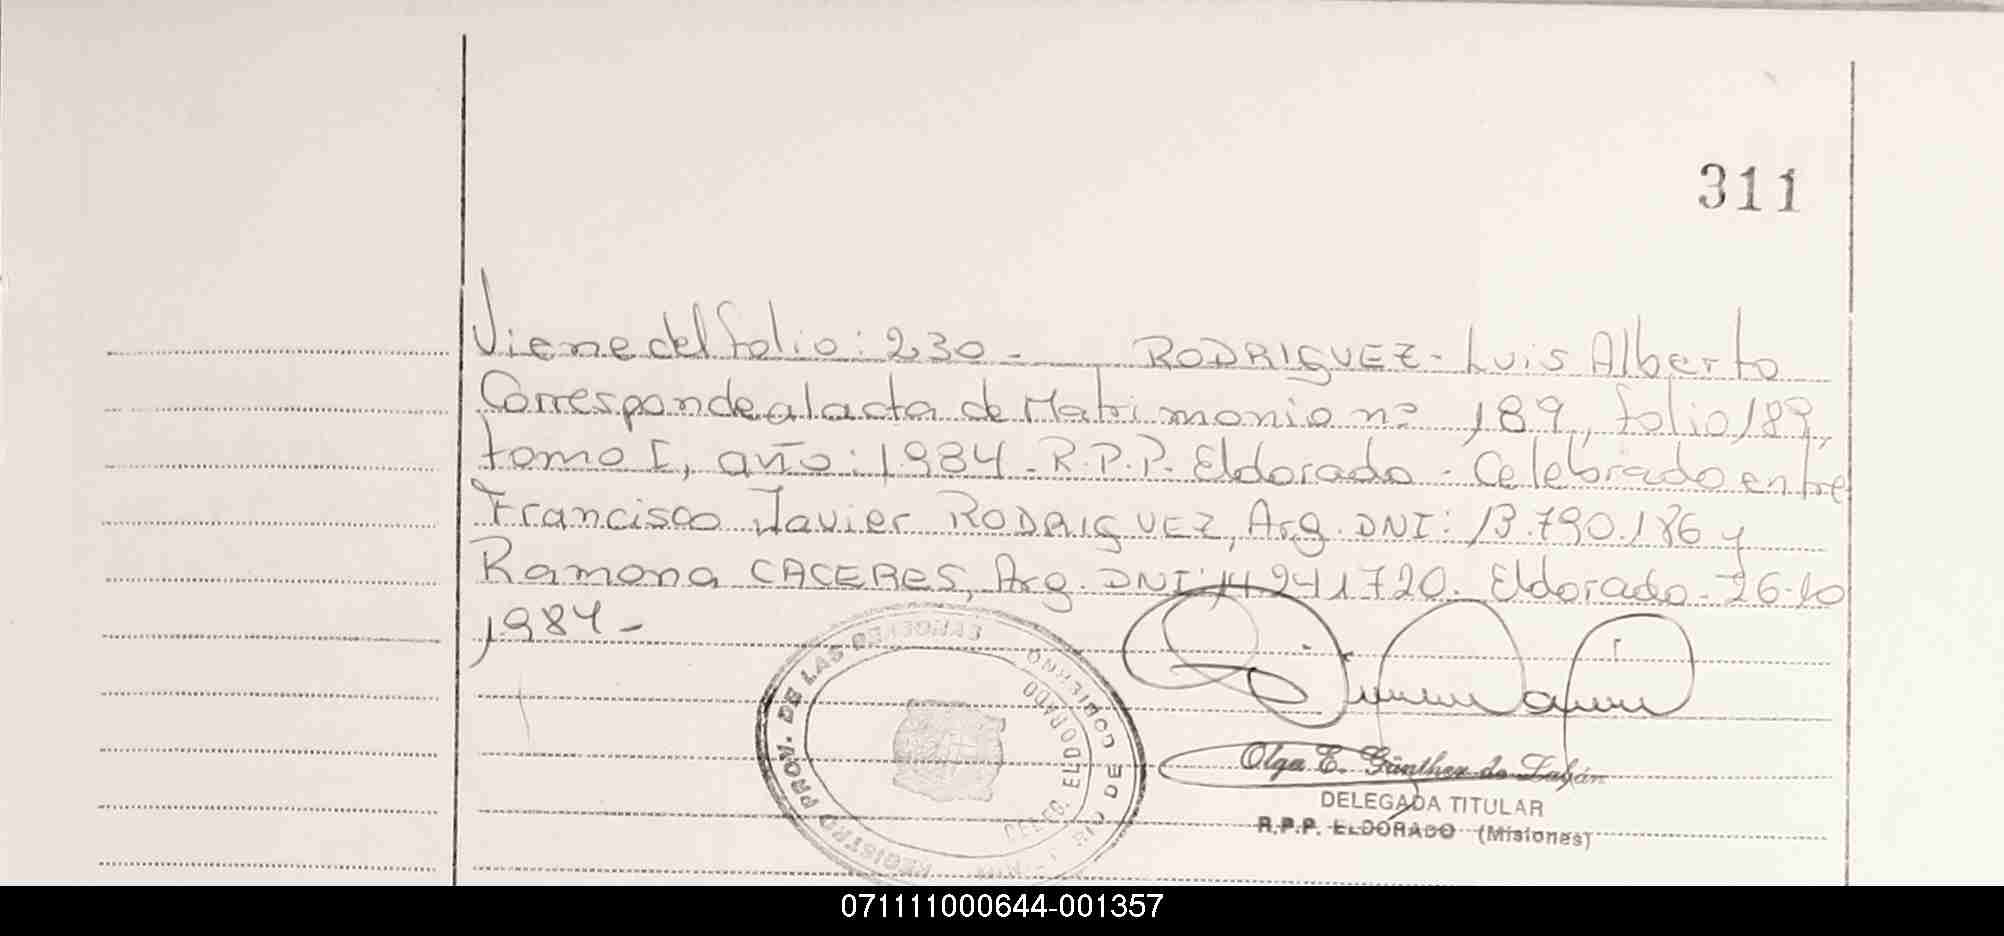 311
Viene del folio: 230 - RODRIGUEZ - Luis Alberto
Corresponde al acta de Matrimonio nº 189, folio 189,
tomo I, año: 1984 - R.P.P. Eldorado - Celebrado entre
Francisco Javier RODRIGUEZ, Arg. DNI: 13.790.186 y
Ramona CACERES, Arg. DNI: 14241720. Eldorado - 26-10
1984 -
REGISTRO PROV. DE LAS PERSONAS
DELEG. ELDORADO
Olga E. Günther de Zabán
DELEGADA TITULAR
R.P.P. ELDORADO (Misiones)
071111000644-001357